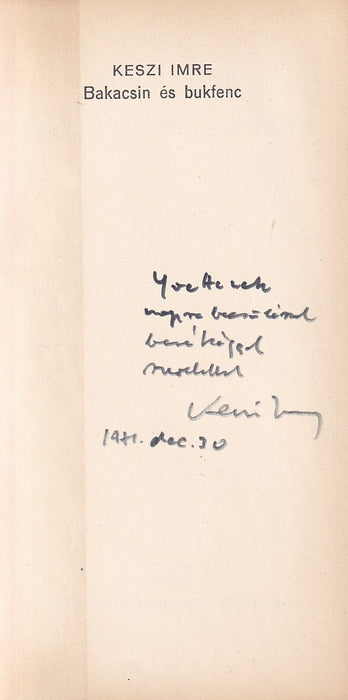 KESZI IMRE
Bakacsin és bukfenc
Yvettenek
nagyrabecsüléssel
barátsággal
szeretettel
Keszi Imre
1971. dec. 30